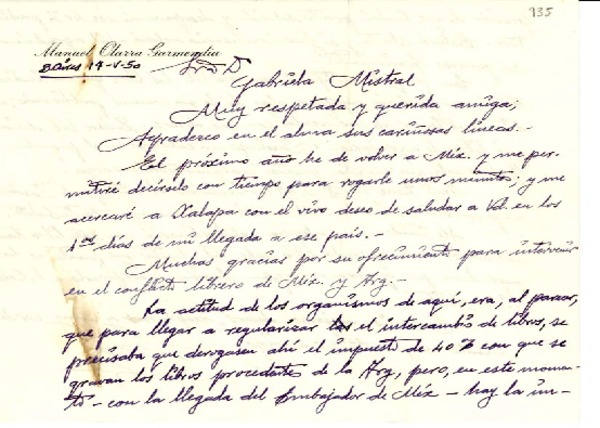 935
Manuel Olarra Garmendia
B. Aires 14-V-50
Sra Dª
Gabriela Mistral
Muy respetada y querida amiga;
Agradezco en el alma sus cariñosas líneas.-
El próximo año he de volver a Méx. y me per-
mitiré decírselo con tiempo para rogarle unos minutos; y me
acercaré a Xalapa con el vivo deseo de saludar a Vd. en los
1ros días de mi llegada a ese país.-
Muchas gracias por su ofrecimiento para intervenir
en el conflicto librero de Méx. y Arg.-
La actitud de los organismos de aquí, era, al parecer,
que para llegar a regularizar el intercambio de libros, se
precisaba que derogasen ahí el impuesto de 40% con que se
gravan los libros procedentes de la Arg, pero, en este momen-
to - con la llegada del Embajador de Méx - hay la im-